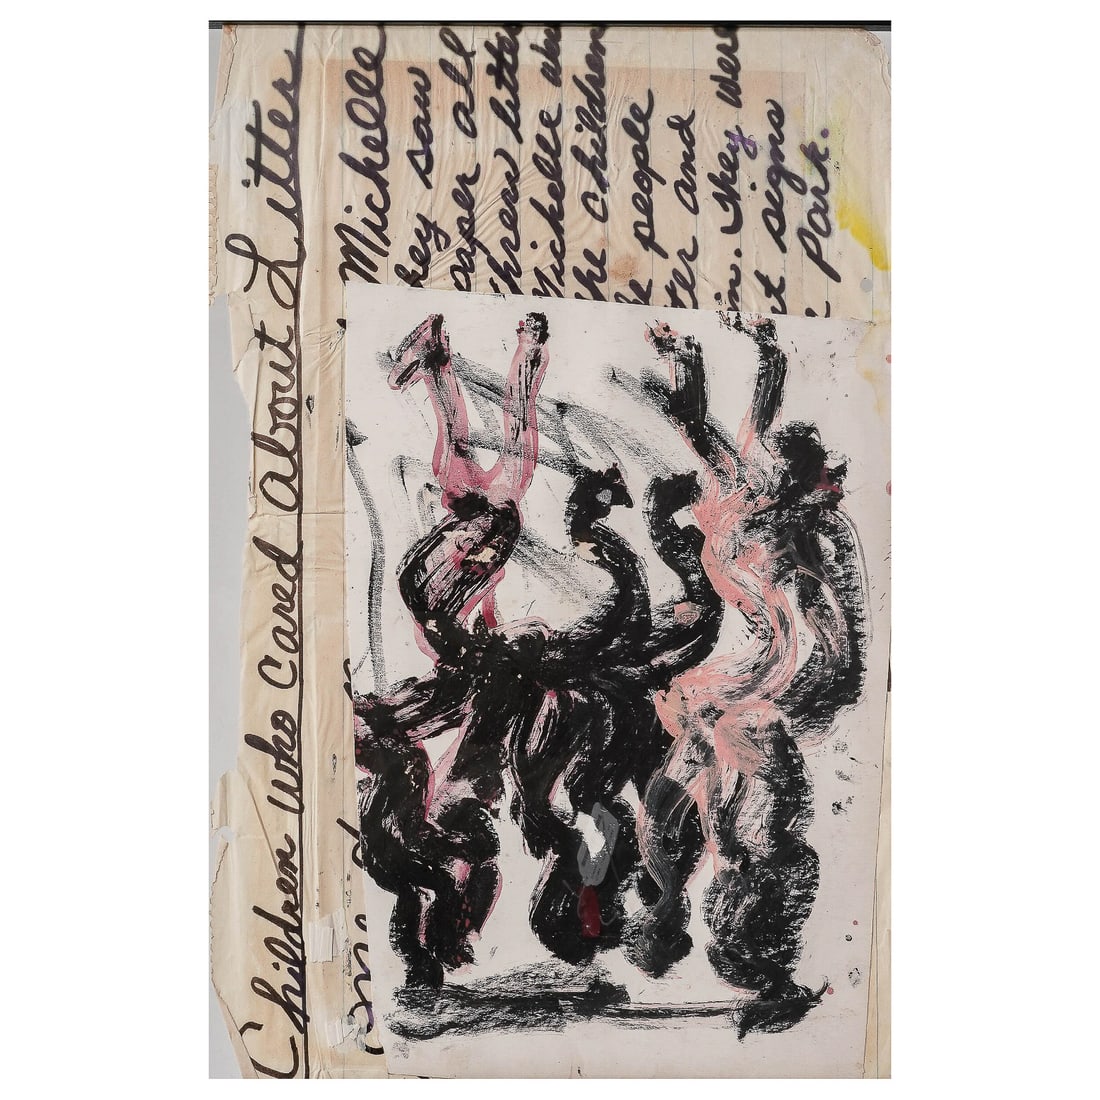 Children who cared about Litter
One Michelle
hey saw
aper all
hrew litte
Michelle
he children
people
ter and
in. They were
t signs
Park.